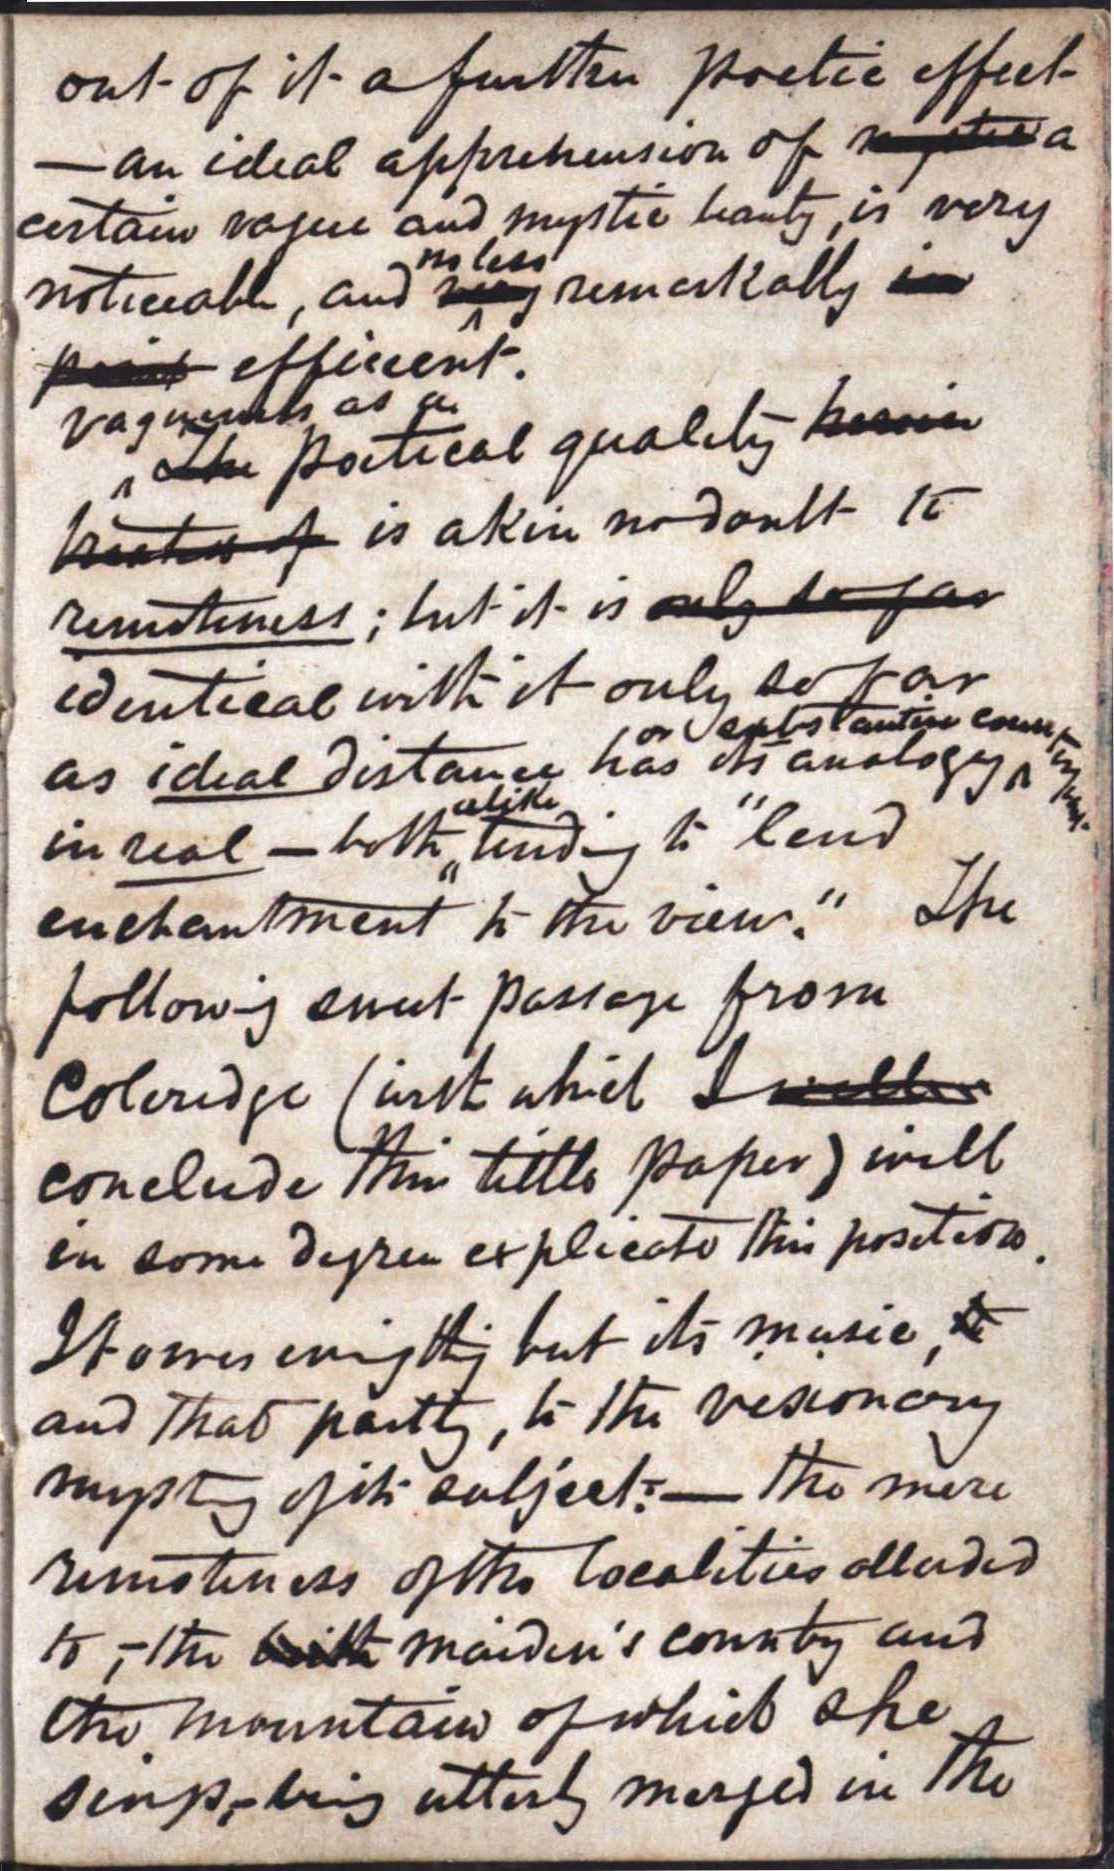 out of it a further poetic effect
— an ideal apprehension of mystic a
certain vague and mystic beauty, is very
no less
noticeable, and very remarkably in
point efficient.
vagueness as a
The poetical quality herein
is akin no doubt to
remoteness; but it is only so far
identical with it only so far
or substantive counterpart
as ideal distance has its analogy
alike
in real — both tending to "lend
enchantment to the view." The
following sweet passage from
Coleridge (with which I
conclude this little paper) will
in some degree explicate this position.
It owes everything but its music,
and that partly, to the visionary
mystery of its subject: — the mere
remoteness of the localities alluded
to, – the both maiden's country and
the mountain of which she
sings, – being utterly merged in the